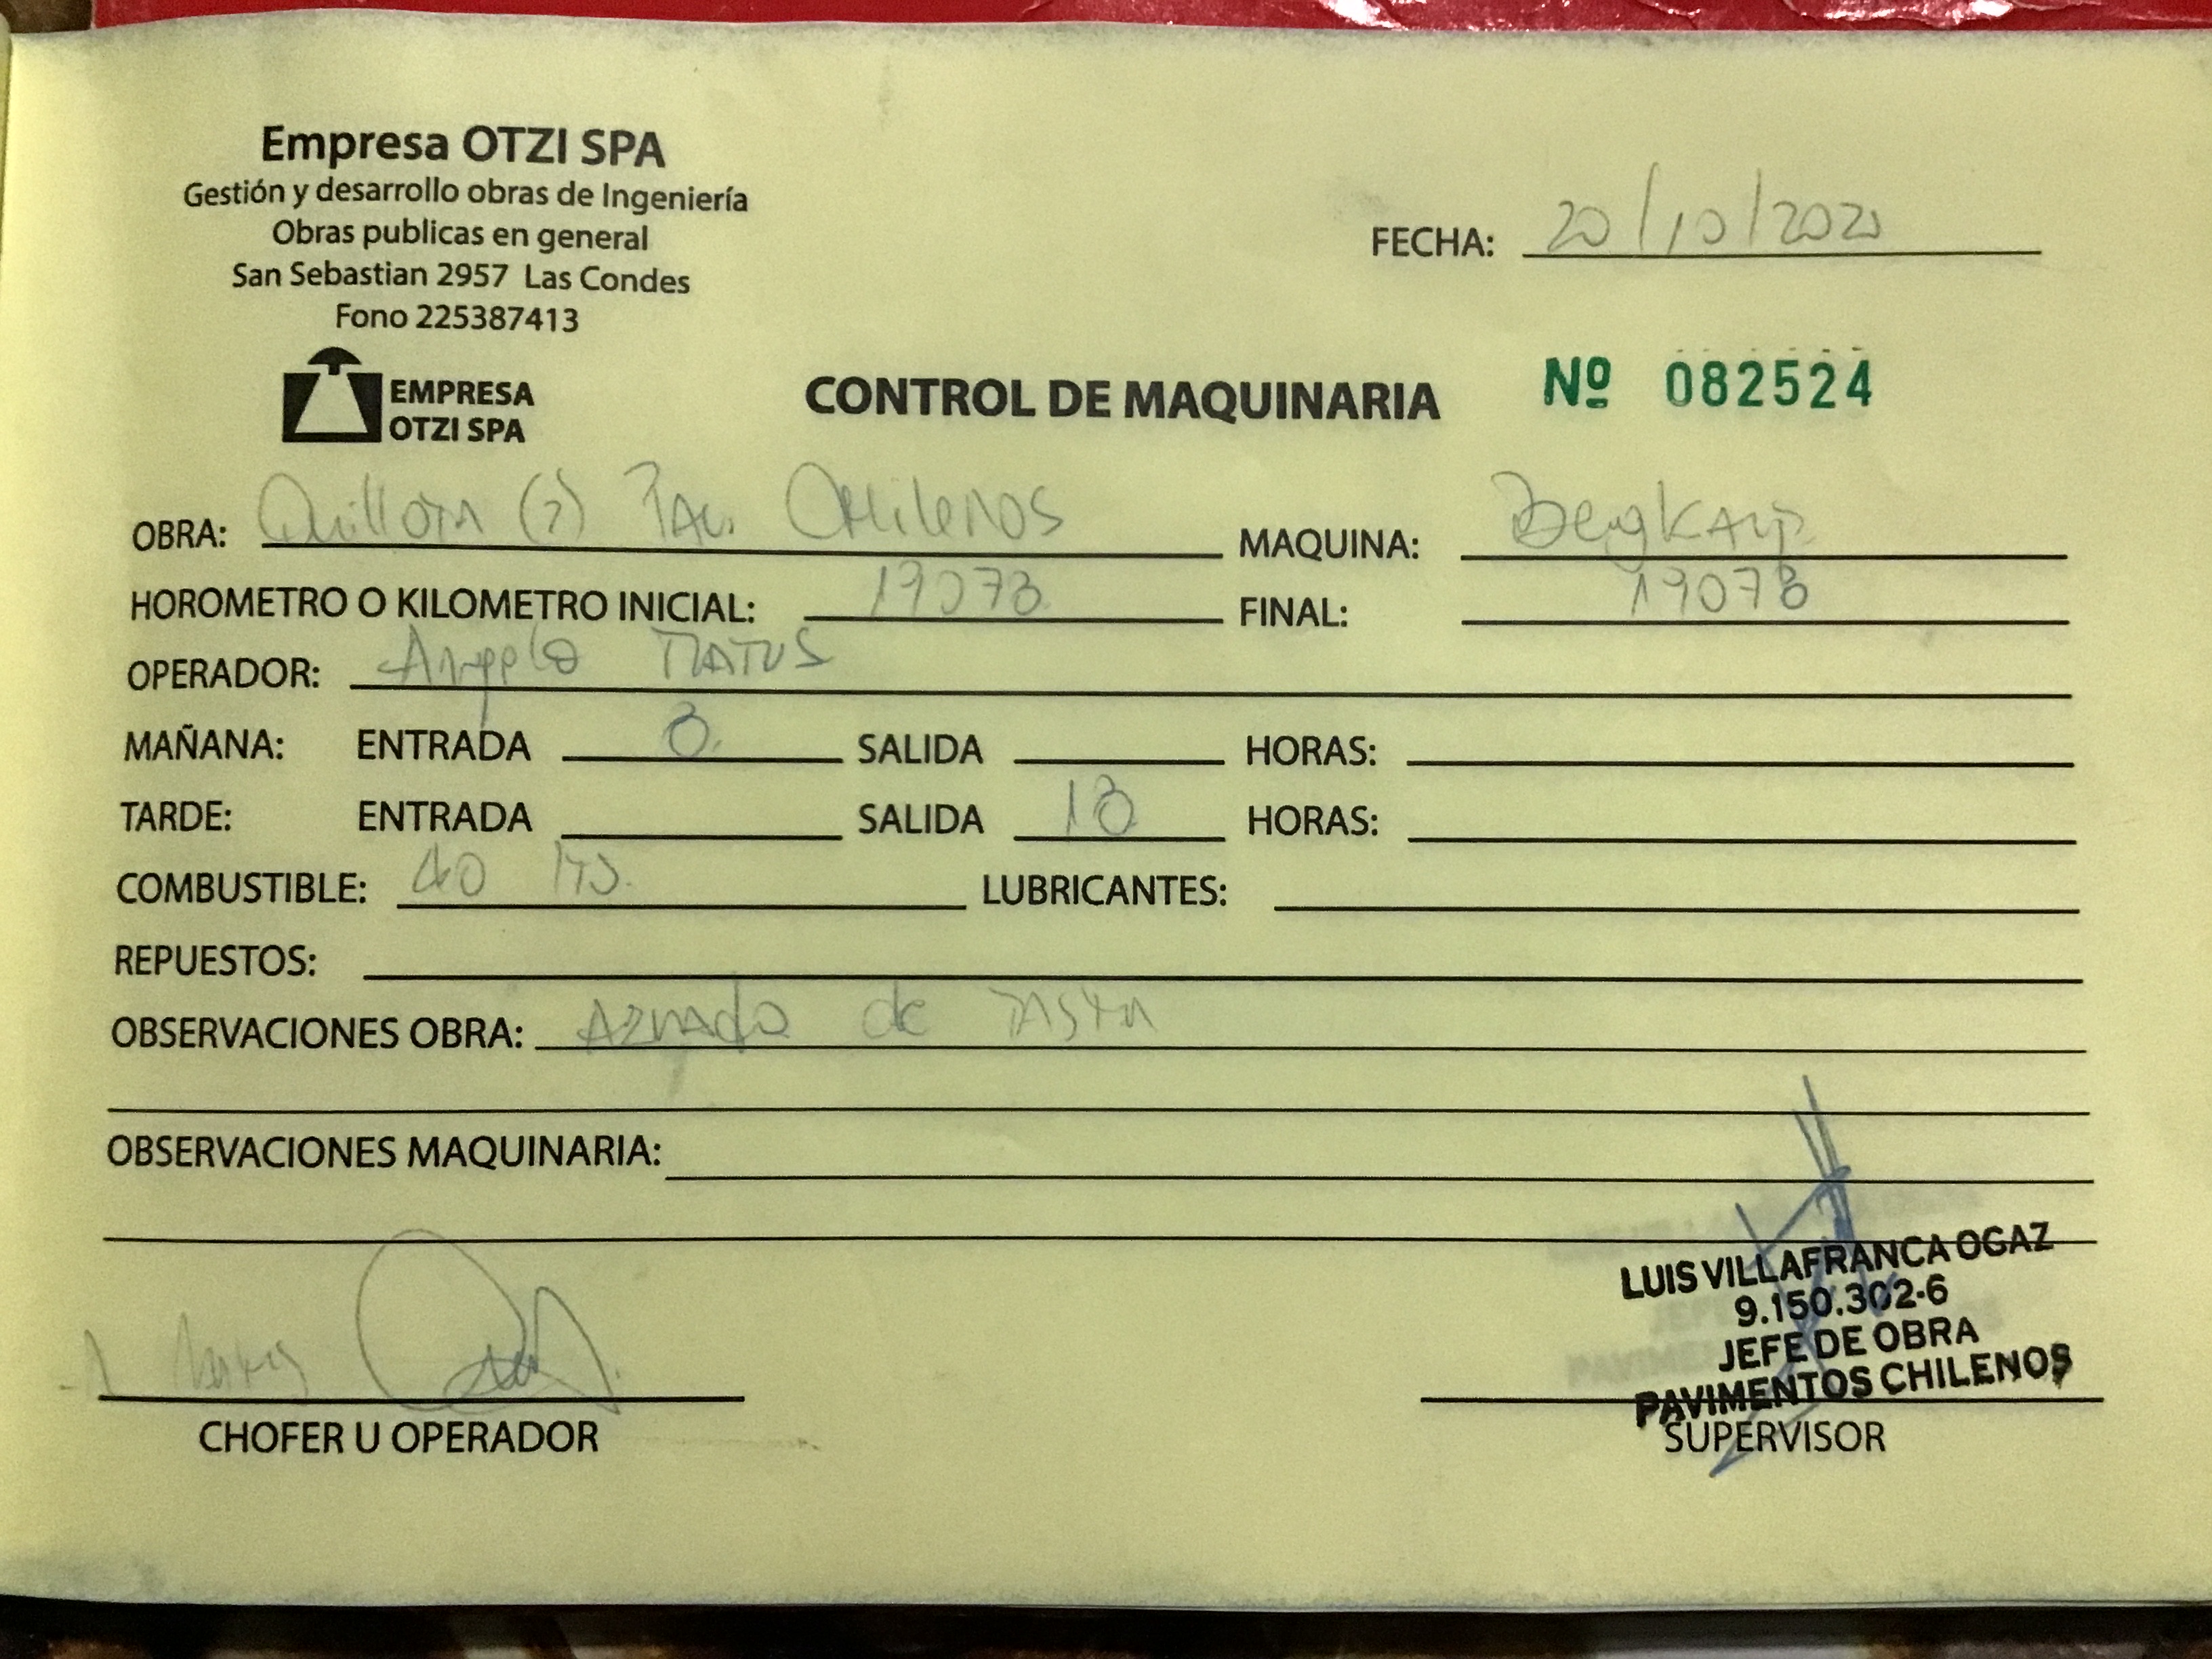 Empresa OTZI SPA
Gestión y desarrollo obras de Ingeniería
Obras publicas en general
San Sebastian 2957 Las Condes
Fono 225387413
FECHA: 20/10/2020
EMPRESA
OTZI SPA
CONTROL DE MAQUINARIA Nº 082524
OBRA: Quillota (2) Pav. Chilenos MAQUINA:
HOROMETRO O KILOMETRO INICIAL: 19078 FINAL: 19078
OPERADOR: Angelo MATUS
MAÑANA: ENTRADA 8 SALIDA HORAS:
TARDE: ENTRADA SALIDA 18 HORAS:
COMBUSTIBLE: 40 lts. LUBRICANTES:
REPUESTOS:
OBSERVACIONES OBRA: de
OBSERVACIONES MAQUINARIA:
LUIS VILLAFRANCA OGAZ
9.150.302-6
JEFE DE OBRA
PAVIMENTOS CHILENOS
CHOFER U OPERADOR SUPERVISOR